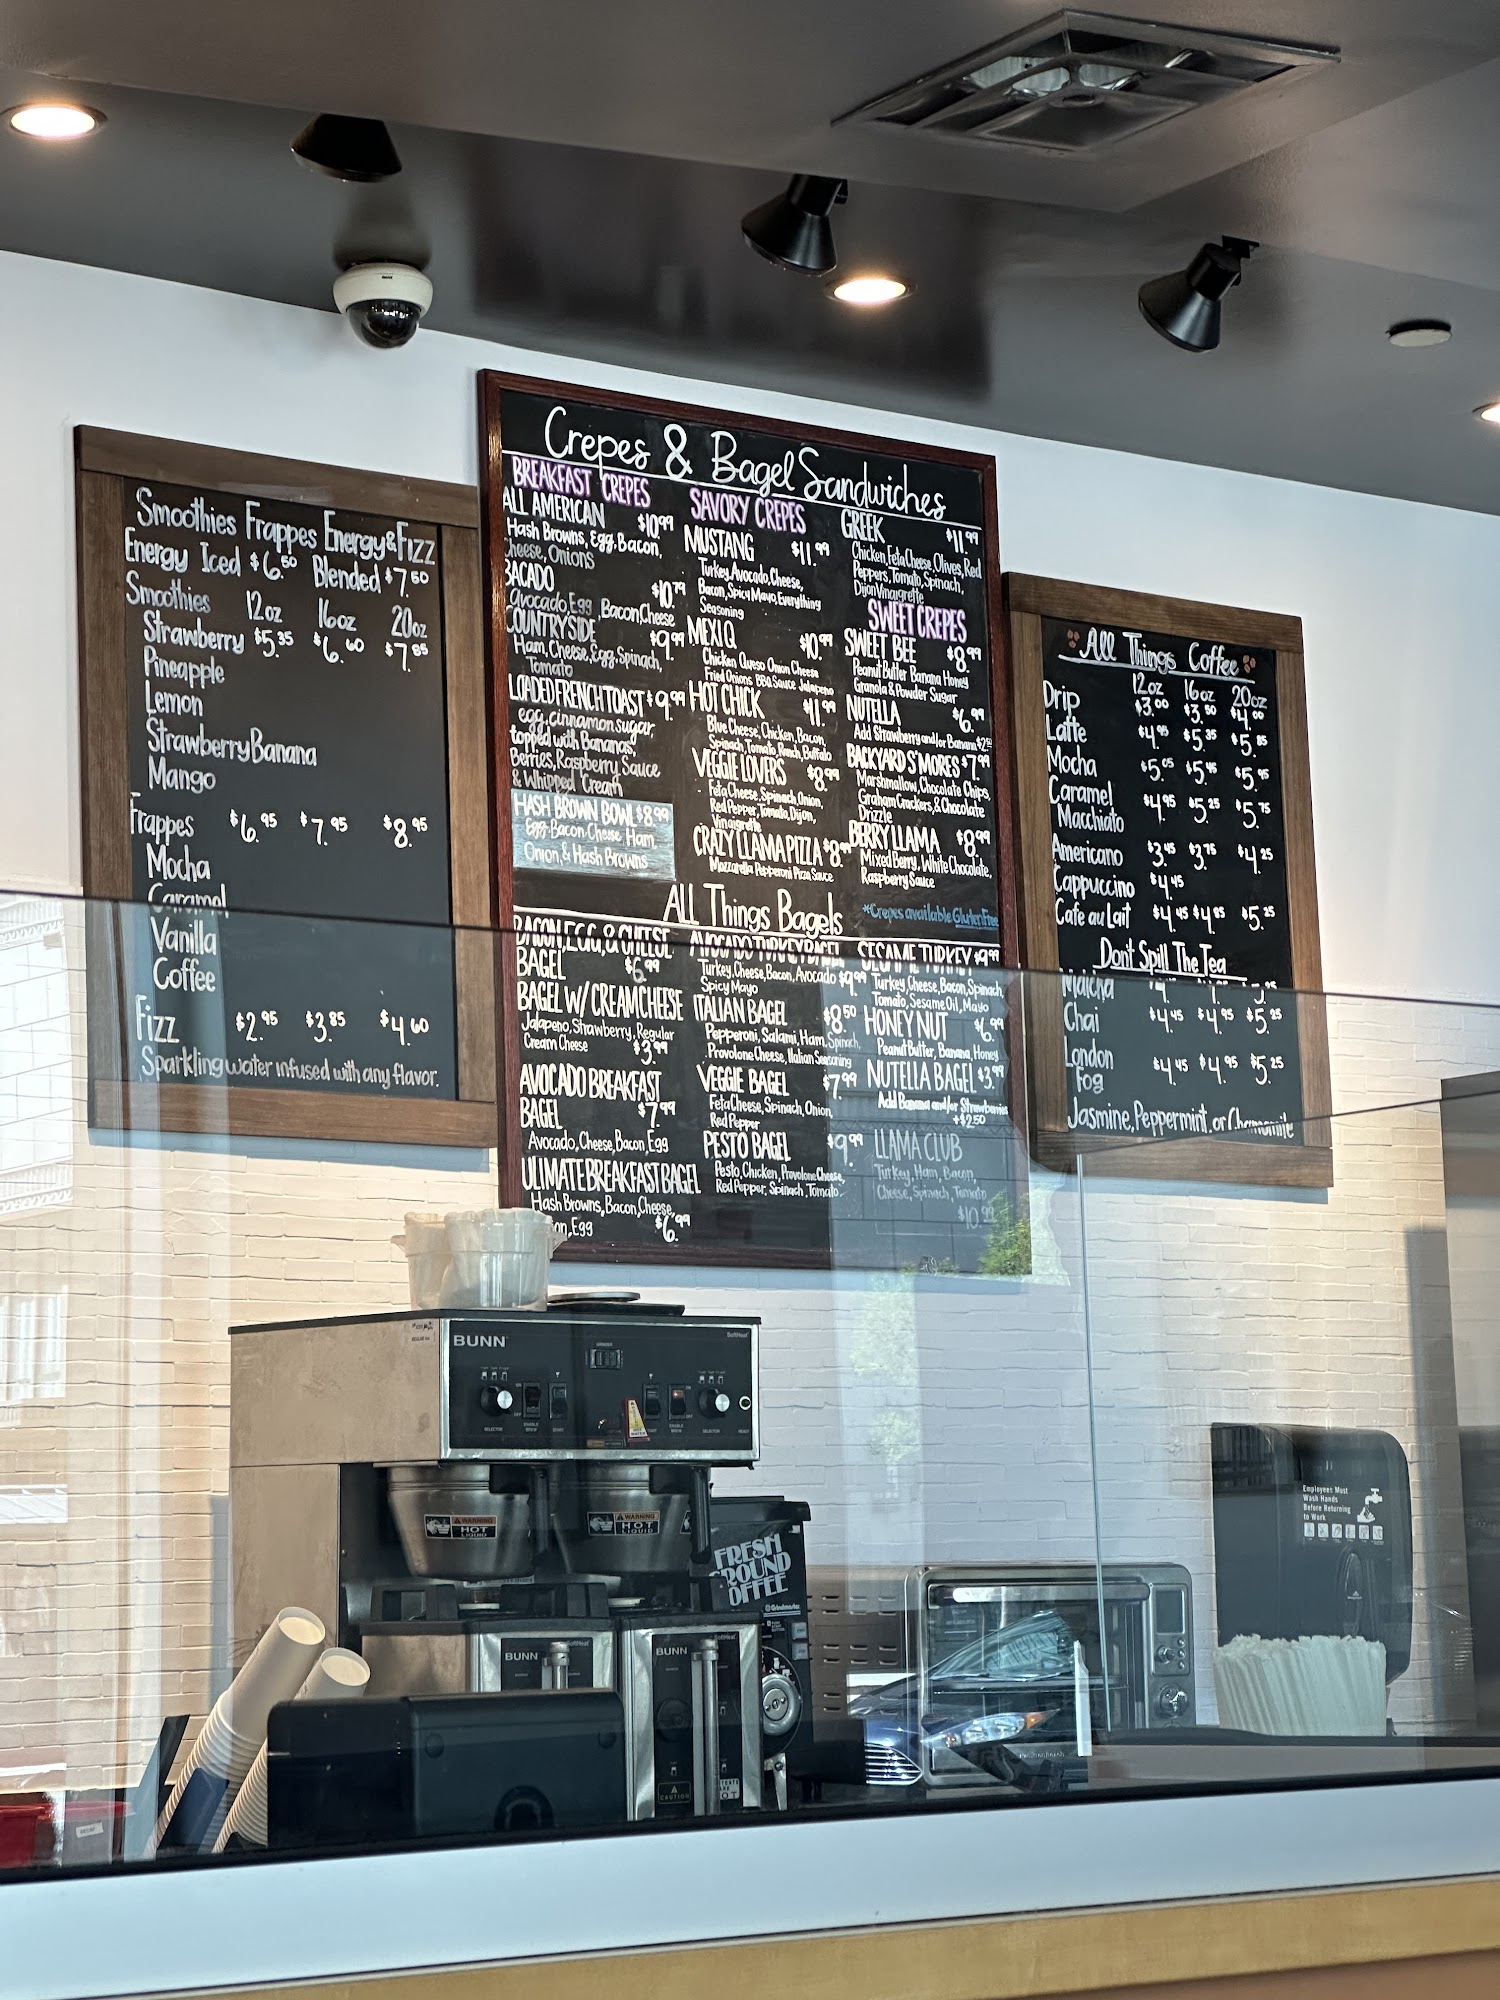 Smoothies Frappes Energy & Fizz
Energy Iced $6.50 Blended $7.50
Smoothies 12oz 16oz 20oz
Strawberry $5.35 $6.60 $7.85
Pineapple
Lemon
Strawberry Banana
Mango
Frappes $6.95 $7.95 $8.95
Mocha
Caramel
Vanilla
Coffee
Fizz $2.95 $3.85 $4.60
Sparkling water infused with any flavor.
Crepes & Bagel Sandwiches
BREAKFAST CREPES
ALL AMERICAN $10.99
Hash Browns, Egg, Bacon,
Cheese, Onions
BACADO $10.79
Avocado, Egg, Bacon, Cheese
COUNTRYSIDE $9.99
Ham, Cheese, Egg, Spinach,
Tomato
LOADED FRENCH TOAST $9.99
egg, cinnamon sugar,
topped with Bananas,
Berries, Raspberry Sauce
& Whipped Cream
HASH BROWN BOWL $8.99
Egg Bacon Cheese Ham,
Onion, & Hash Browns
SAVORY CREPES
MUSTANG $11.99
Turkey, Avocado, Cheese,
Bacon, Spicy Mayo, Everything
Seasoning
MEXI Q $10.99
Chicken Queso Onion Cheese
Fried Onions BBQ Sauce Jalapeno
HOT CHICK $11.99
Blue Cheese, Chicken, Bacon,
Spinach, Tomato, Ranch, Buffalo
VEGGIE LOVERS $8.99
Feta Cheese, Spinach, Onion,
Red Pepper, Tomato, Dijon,
Vinaigrette
CRAZY LLAMA PIZZA $8.99
Mozzarella Pepperoni Pizza Sauce
GREEK $11.99
Chicken, Feta Cheese, Olives, Red
Peppers, Tomato, Spinach,
Dijon Vinaigrette
SWEET CREPES
SWEET BEE $8.99
Peanut Butter Banana Honey
Granola & Powder Sugar
NUTELLA $6.99
Add Strawberry and/or Banana $2.50
BACKYARD S'MORES $7.99
Marshmallow, Chocolate Chips,
Graham Crackers, & Chocolate
Drizzle
BERRY LLAMA $8.99
Mixed Berry, White Chocolate,
Raspberry Sauce
*Crepes available Gluten Free
ALL Things Bagels
BACON, EGG, & CHEESE
BAGEL $6.99
BAGEL W/ CREAM CHEESE
Jalapeno, Strawberry, Regular
Cream Cheese $3.99
AVOCADO BREAKFAST
BAGEL $7.99
Avocado, Cheese, Bacon, Egg
ULIMATE BREAKFAST BAGEL
Hash Browns, Bacon, Cheese,
Egg $6.99
AVOCADO TURKEY BAGEL
Turkey, Cheese, Bacon, Avocado $9.99
Spicy Mayo
ITALIAN BAGEL $8.50
Pepperoni, Salami, Ham, Spinach,
Provolone Cheese, Italian Seasoning
VEGGIE BAGEL $7.99
Feta Cheese, Spinach, Onion,
Red Pepper
PESTO BAGEL $9.99
Pesto, Chicken, Provolone Cheese,
Red Pepper, Spinach, Tomato
SESAME TURKEY $9.99
Turkey, Cheese, Bacon, Spinach,
Tomato, Sesame Oil, Mayo
HONEY NUT $6.99
Peanut Butter, Banana, Honey
NUTELLA BAGEL $3.99
Add Banana and/or Strawberries
+$2.50
LLAMA CLUB
Turkey, Ham, Bacon,
Cheese, Spinach, Tomato
$10.99
All Things Coffee
12oz 16oz 20oz
Drip $3.00 $3.50 $4.00
Latte $4.95 $5.35 $5.85
Mocha $5.05 $5.45 $5.95
Caramel
Macchiato $4.95 $5.25 $5.75
Americano $3.45 $3.75 $4.25
Cappuccino $4.45
Cafe au Lait $4.45 $4.85 $5.25
Don't Spill The Tea
Matcha
Chai $4.45 $4.95 $5.25
London
Fog $4.45 $4.95 $5.25
Jasmine, Peppermint, or Chamomile
BUNN
SoftHeat
WARNING
HOT
LIQUID
WARNING
HOT
LIQUID
FRESH
GROUND
COFFEE
Grindmaster
BUNN
BUNN
CAUTION
Employees Must
Wash Hands
Before Returning
to Work
DECAF